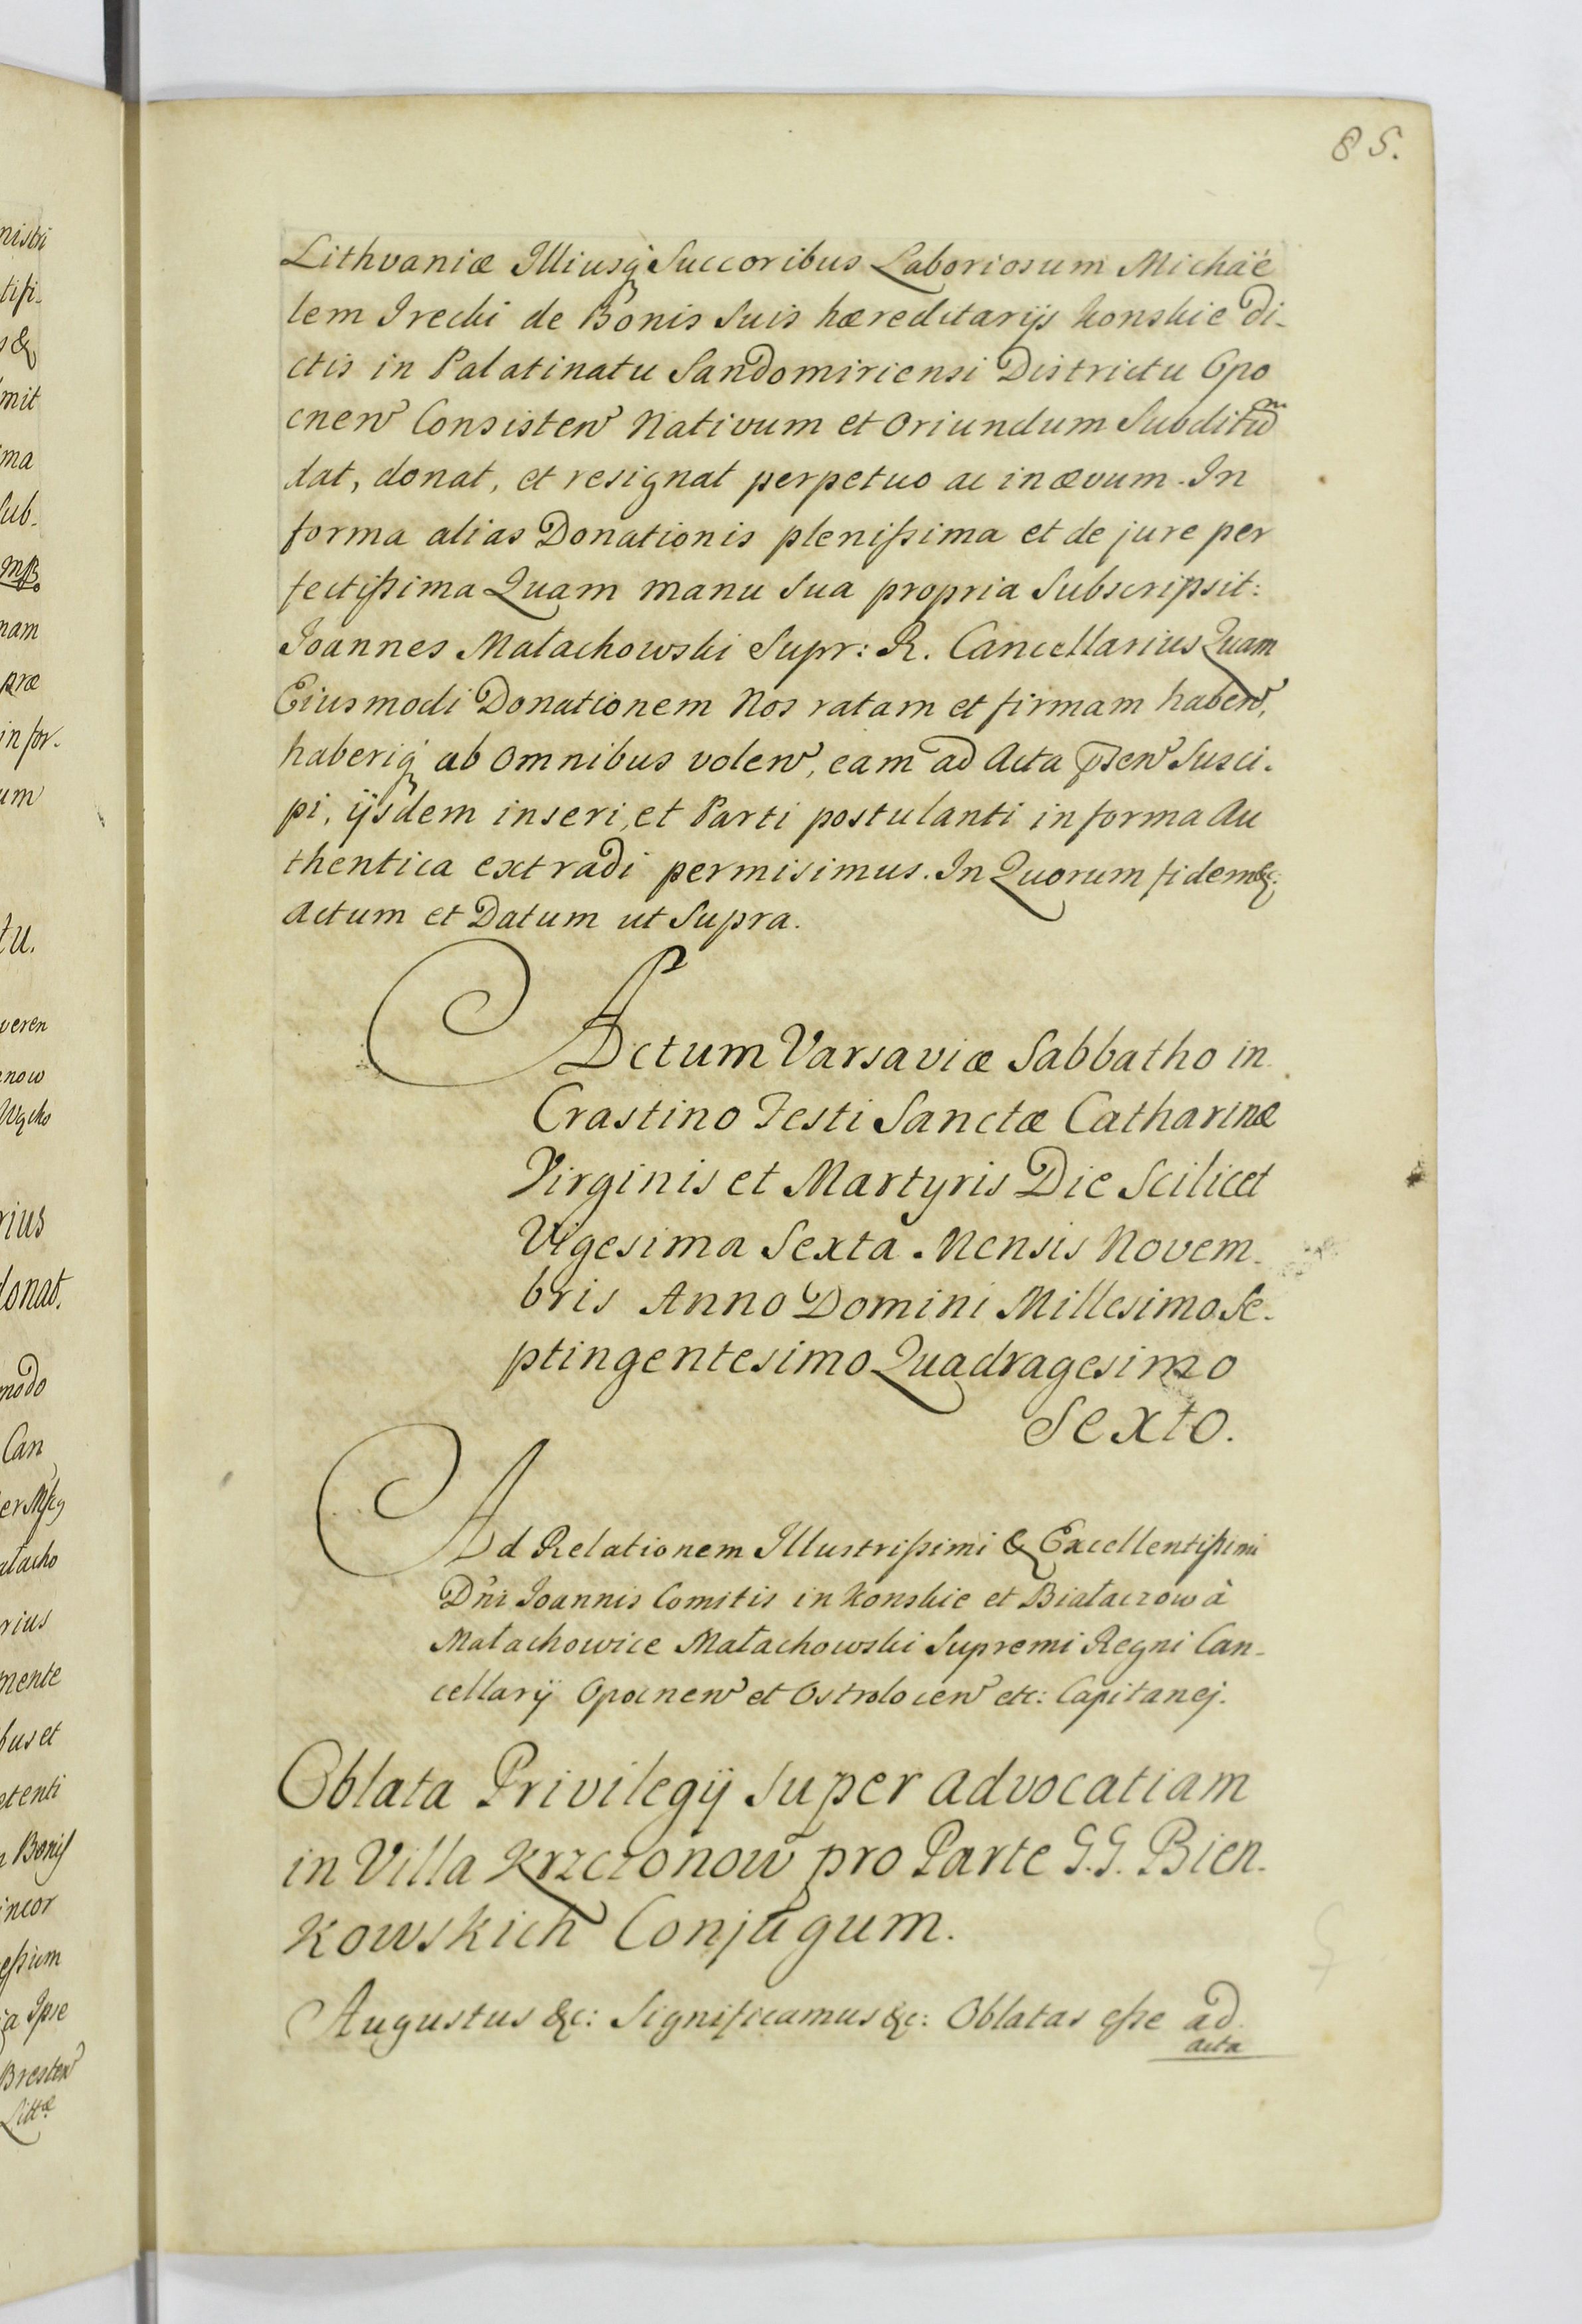 85.
Lithvaniæ Illiusq Succoribus Laboriosum Michäe
lem Irecki de Bonis Suis hæreditarijs Konskie Di-
ctis in Palatinatu Sandomiriensi Districtu Opo
cnen Consisten Nativum et Oriundum Subditum
dat, donat, et resignat perpetuo ac in ævum. In
forma alias Donationis plenissima et de jure per
fectissima Quam manu Sua propria Subscripsit:
Joannes Małachowski Supr: R. Cancellarius Quam
Eiusmodi Donationem Nos ratam et firmam haben,
haberiq ab Omnibus volen, eam ad Acta psen Susci-
pi, ijsdem inseri, et Parti postulanti in forma Au
thentica extradi permisimus. In Quorum fidem &c:
Actum et Datum ut Supra.
Actum Varsaviæ Sabbatho in
Crastino Festi Sanctæ Catharinæ
Virginis et Martyris Die Scilicet
Vigesima Sexta Mensis Novem-
bris Anno Domini Millesimo Se-
ptingentesimo Quadragesimo
Sexto.
Ad Relationem Illustrissimi & Excellentissimi
Dni Joannis Comitis in Konskie et Białaczow à
Małachowice Małachowski Supremi Regni Can-
cellarij Opocnen et Ostrolocen etc: Capitanej.
Oblata Privilegij Super advocatiam
in Villa Krzczonow pro Parte G.G. Bien-
kowskich Conjugum.
Augustus &c: Significamus &c: Oblatas esse ad
acta